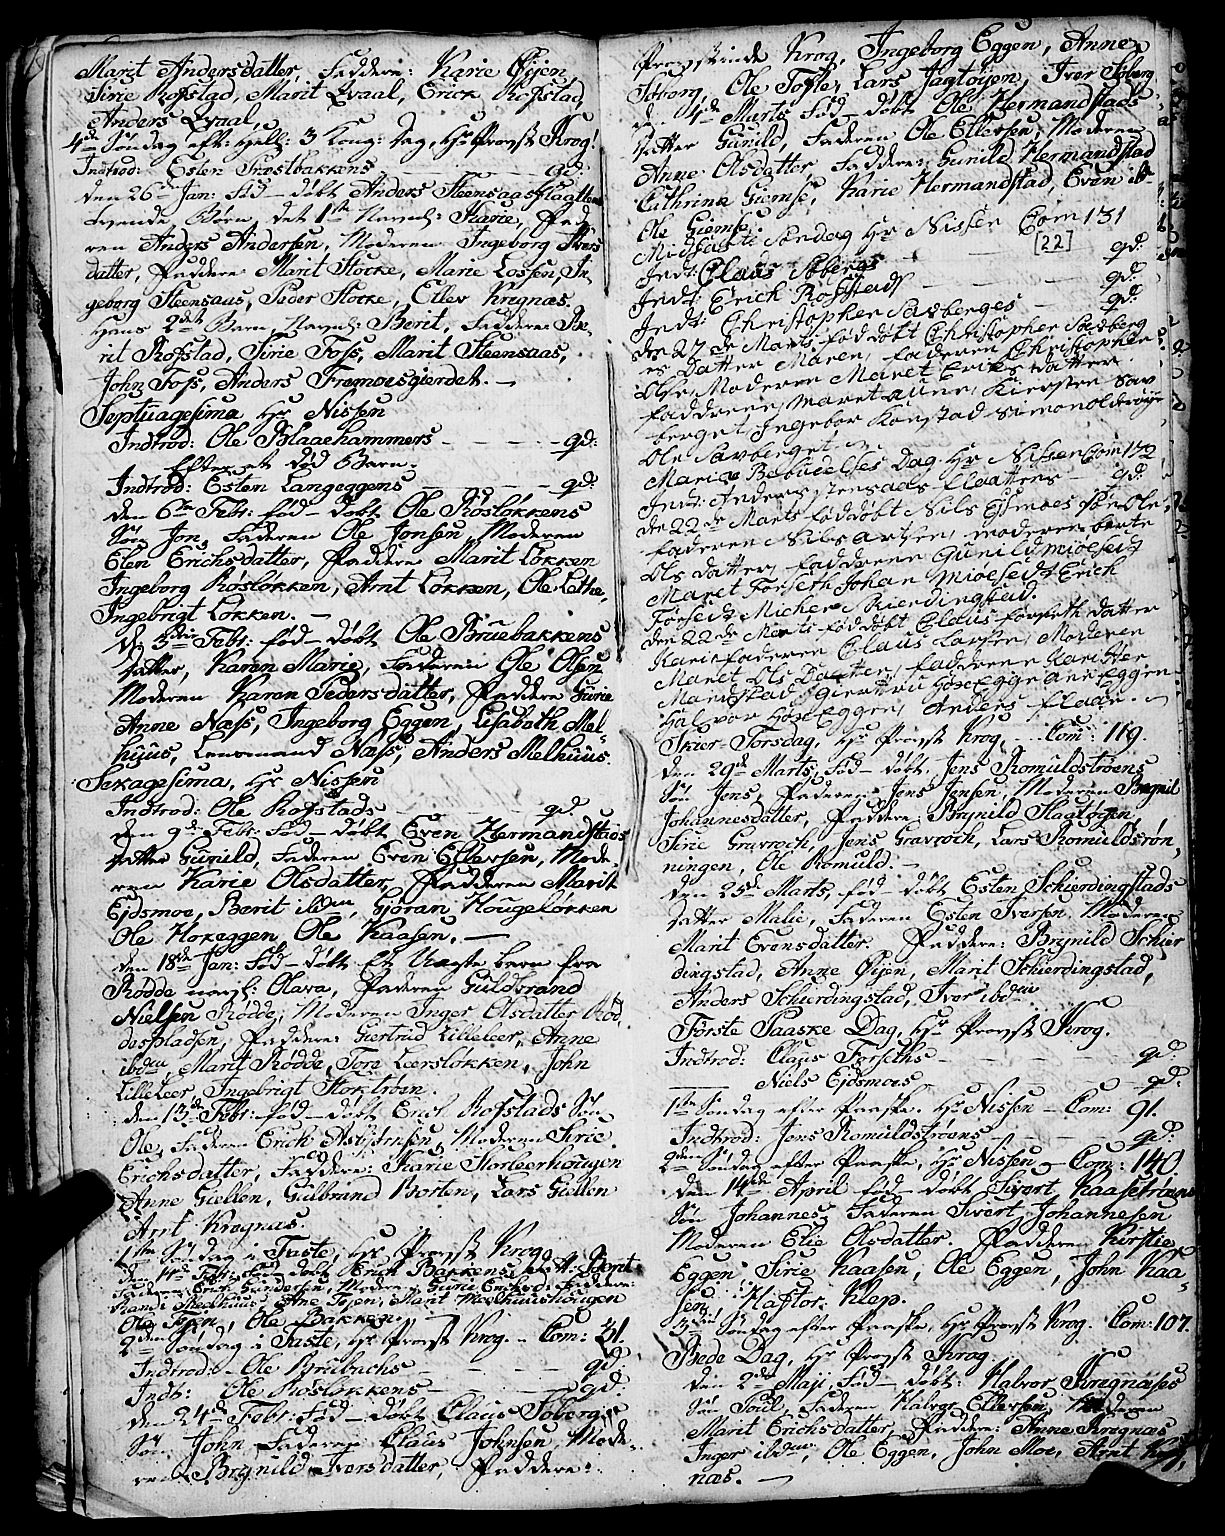 Marit Andersdatter, Faddere: Karie Øijen,
Sirie Rofstad, Marit Qvaal, Erick Rofstad,
Anders Qvaal,
4de Søndag eft: Hell: 3 Kong: dag, Hr Provst Krog!
Indtrod: Esten Træsbakkens qd:
den 26de Jan: fød - døbt Anders Steensaas Flaatten
Børn, det 1ste Navnl: Karie, Fade
ren Anders Andersen, Moderen Ingeborg Ivers
datter, Faddere Marit Stocke, Marie Lossen, In,
geborg Steensaas, Peder Stocke, Ellev Kregnæs.
Hans 2det Barn, Navnl: Berit, Faddere Ma,
rit Rofstad, Sirie Foss, Marit Steensaas,
John Foss, Anders Fremoesgierdet. -
Septuagesima Hr Nissen
Indtrod: Ole Blaaehammers qd:
Efter et død Barn.
Indtrod: Esten Langeggens qd:
den 6te Febr: fød - døbt Ole Røsløkkens
Søn Jon, Faderen Ole Jonsen, Moderen
Elen Erichsdatter, Faddere Marit Løkken
Ingeborg Røsløkken, Arnt Løkken, Ole Lethe,
Ingebrigt Løkken. -
d: 5die Febr: fød - døbt Ole Bruebakkens
datter, Karen Marie, Faderen Ole Olsen
Moderen Karen Pedersdatter, Faddere Gurie
Anne Næss, Ingeborg Eggen, Lisabeth Mel-
huus, Lensmand Næss, Anders Melhuus.
Sexagesima, Hr Nissen
Indtrod: Ole Rofstads qd.
den 9de Febr: fød - døbt Even Hermandstads
datter Gunild, Faderen Even Ellevsen, Mode,
ren Karie Olsdatter, Faddere Marit
Ejdsmoe, Berit ibdm, Gjøran Hougeløkken
Ole Hoxeggen, Ole Kaasen. -
den 18de Jan: fød - døbt Et Uægte barn fra
Rødde navnl: Olava, Faderen Guldbrand
Nielsen Rødde, Moderen Inger Olsdatter Rød,
despladsen, Faddere Giertrud Lilleleer, Anne
ibdm, Marit Rødde, Tore Leersløkken, John
LilleLeer, Ingebrigt Stortrøen.
den 13de Febr: fød - døbt Erich Rofstads Søn
Ole, Faderen Erich Asbjørnsen, Moderen Sirie
Erichsdatter, Faddere: Marie Storleerhougen
Anne Giellen, Gulbrand Borten, Lars Giellen
Arnt Kregnæs.
1ste Søndag i Faste, Hr Provst Krog
den 14de Febr: fød døbt Erich Bakkens
Faderen Erich Moderen Gurie Faddere:
Anne Tøjen, Marit Melhuushougen
Ole Tøjen, Ole Bakken.
2den Søndag i Faste, Hr Provst Krog. - Com: 31.
Indtrod: Ole Bruebachs qd:
Indt: Ole Røsløkkens qd:
den 24de Febr: fød - døbt Claus Søbergs
Søn John, Faderen Claus Johnsen, Mode,
ren Brynild Iversdatter, Faddere:
Provstinde Krog, Ingeborg Eggen, Anne
Søberg, Ole Tofte, Lars Jagtøyen, Iver Søberg
den 4de Marts fød - døbt Ole Hermandstads
datter Gunild, Faderen Ole Ellevsen, Moderen
Anne Olsdatter, Faddere: Gunild Hermandstad
Cathrina Giemse, Karie Hermandstad, Even ib
Ole Giemse.
Midfaste Søndag Hr Nissen Com 131
[22]
Indt: Claus Søbergs qd:
Indt: Erich Rofstads qd:
Indt: Christopher Savberges qd:
den 27de Marts fød døbt Christopher Savberg
es Datter Maren, faderen Christopher
Olse Moderen Maret Eriks datter
faddere, Maret aune, Kiersten Sav
berget Ingebor Konstad Simon
Ole Savberget.
Mariæ Bebudelses Dag. Hr Nissen Com 172
Indt: Anders Steensaas Flaattens - qd:
den 22de Marts fød døbt Nils Ejsmoes søn Ole,
faderen Nils moderen berte
Ols datter, faddere Gunild miøesedt
Maret Forseth Johan Miøesedt Erich
Forsedt Michel Skierdingsted.
den 22de Marts fød døbt Claus forseth datter
Kari faderen Claus Larsen, Moderen
Maret Ols Datter, faddere Kari Her
Mandstad Giertru Hoxeggen ane Eggen
Halvor Hoxeggen, Anders flade. -
Skier-Torsdag, Hr Provst Krog, - Com: 119.
den 29de Marts, fød - døbt, Jens Romuldstrøens
Søn Jens, Faderen: Jens Jensen, Moderen Brynil
Johannesdatter, Faddere: Brynild Slaatøyen,
Sirie Gravroch, Jens Gravroch, Lars Romuldsrøn,
ningen, Ole Romuld. -
den 25de Marts, fød - døbt Esten Schierdingstads
datter Malie, Faderen Esten Iversen, Moderen
Marit Evensdatter. Faddere: Brynild Schier
dingstad, Anne Øijen, Marit Schierdingstad,
Anders Schierdingstad, Iver ibdm
Første Paaske Dag, Hr Provst Krog.
Indtrod: Claus Forseths qd:
Niels Ejdsmoes qd:
1ste Søndag efter Paaske. Hr Nissen - Com: 91.
Indtrod: Jens Romuldstrøens qd:
2den Søndag efter Paaske, Hr Nissen - Com: 140.
den 14de April fød - døbt Sivert Kaasetrøens
Søn Johannes, Faderen Sivert Johannesen
Moderen Elie Olsdatter. Faddere Kirstie
Eggen Sirie Kaasen, Ole Eggen, John Kaa-
sen, Haftor Klep.
3die Søndag efter Paaske, Hr Provst Krog. Com: 107.
Bede Dag, Hr Provst Krog.
den 2den Maji fød - døbt: Halvor Kregnæses
Søn Poul, Faderen Halvor Ellevsen, Moderen
Marit Erichsdatter, Faddere: Anne Kregnæs
Inger ibdm, Ole Eggen, John Moe, Arnt Kreg,
næs. -